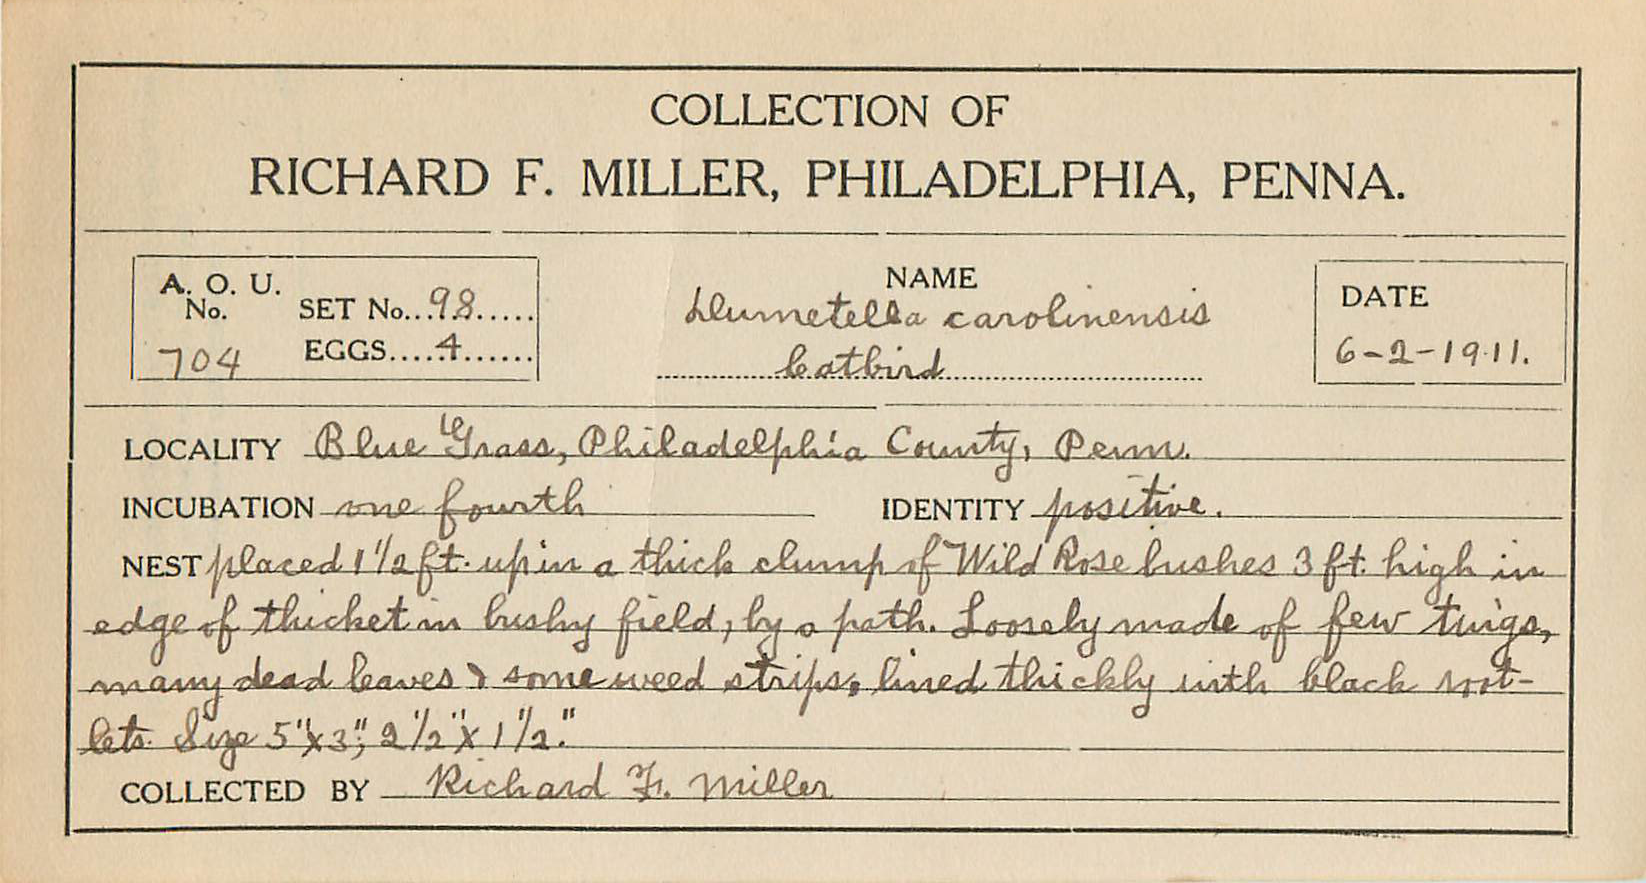 COLLECTION OF
RICHARD F. MILLER, PHILADELPHIA, PENNA.
A. O. U. No. 704
SET No...98.....
EGGS....4......
NAME
Dumetella carolinensis
Catbird
DATE
6-2-1911.
LOCALITY Blue Grass, Philadelphia County, Penn.
INCUBATION one fourth IDENTITY positive.
NEST placed 1 1/2 ft. up in a thick clump of Wild Rose bushes 3 ft. high in
edge of thicket in bushy field, by a path. Loosely made of few twigs,
many dead leaves & some weed strips, lined thickly with black root-
lets. Size 5"x3"; 2 1/2"x 1 1/2."
COLLECTED BY Richard F. Miller